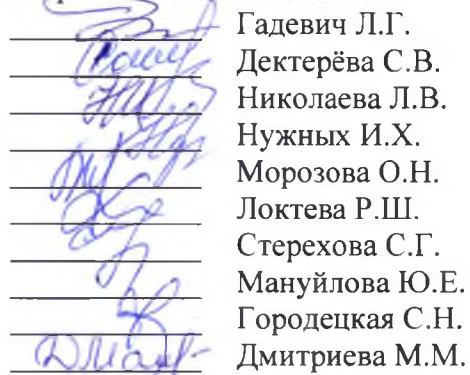 Гадевич Л.Г.
Дектерёва С.В.
Николаева Л.В.
Нужных И.Х.
Морозова О.Н.
Локтева Р.Ш.
Стерехова С.Г.
Мануйлова Ю.Е.
Городецкая С.Н.
Дмитриева М.М.